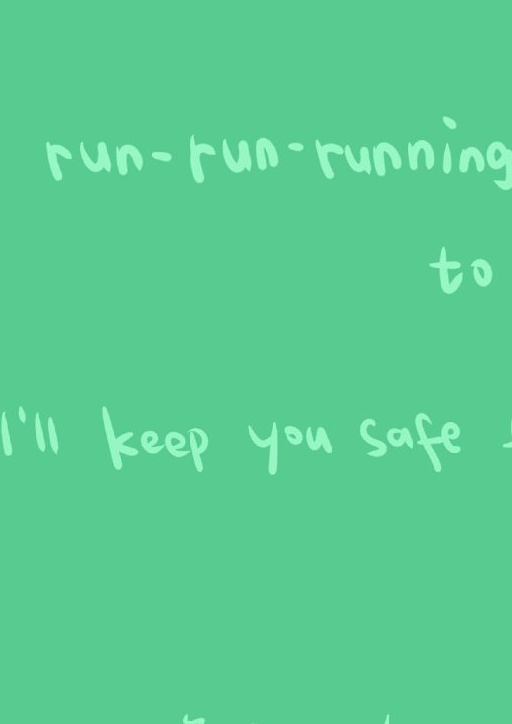 run-run-running
to
I'll keep you safe